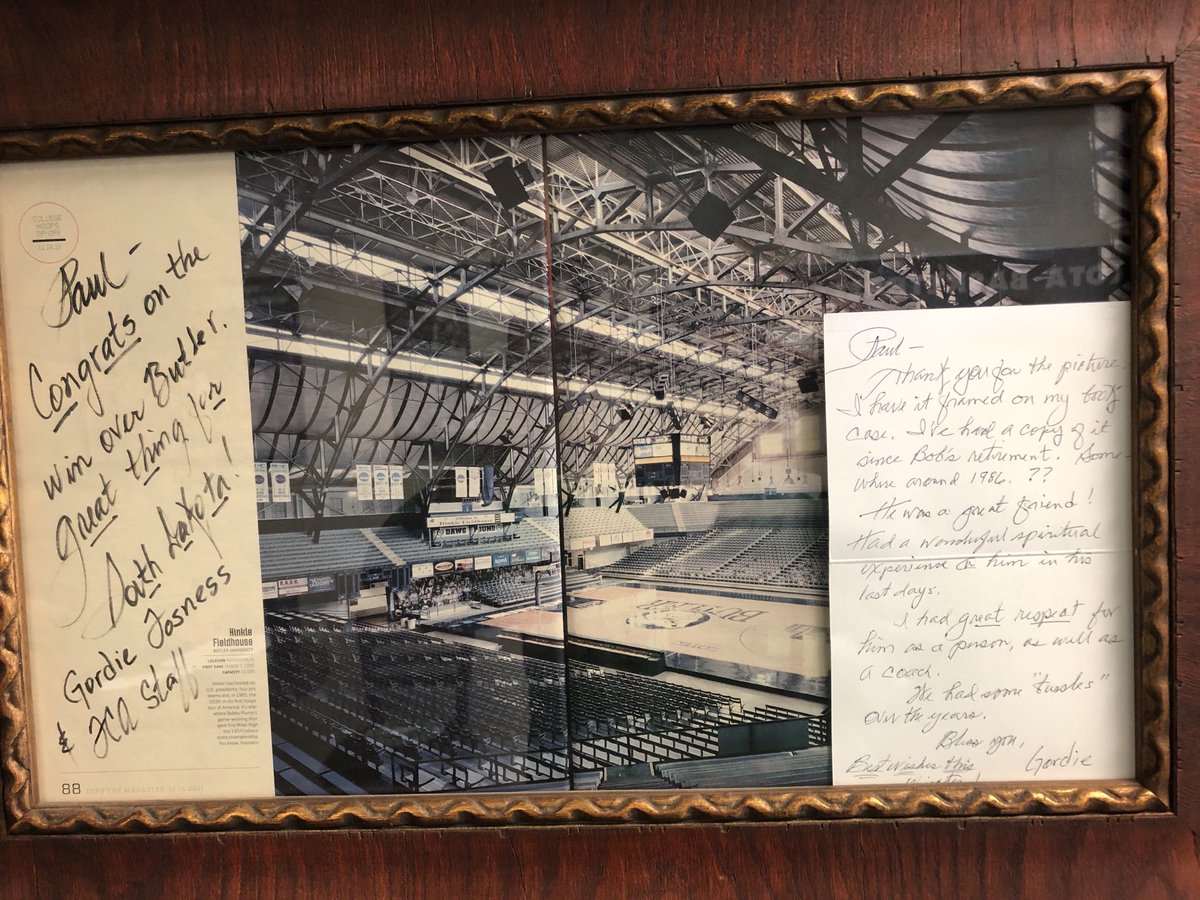 COLLEGE
HOOPS
TIP-OFF
Paul -
Congrats on the
win over Butler.
Great thing for
South Dakota!
Gordie Fosness
& FCA Staff
Hinkle
Fieldhouse
BUTLER UNIVERSITY
88 ESPN THE MAGAZINE
Hinkle Fieldhouse
DAWG POUND
BUTLER
Paul -
Thank you for the picture.
I have it framed on my book
case. I've had a copy of it
since Bob's retirement. Some-
where around 1986. ??
He was a great friend!
Had a wonderful spiritual
experience with him in his
last days.
I had great respect for
him as a person, as well as
a coach.
We had some "tussles"
over the years.
Bless you,
Gordie
Best wishes this